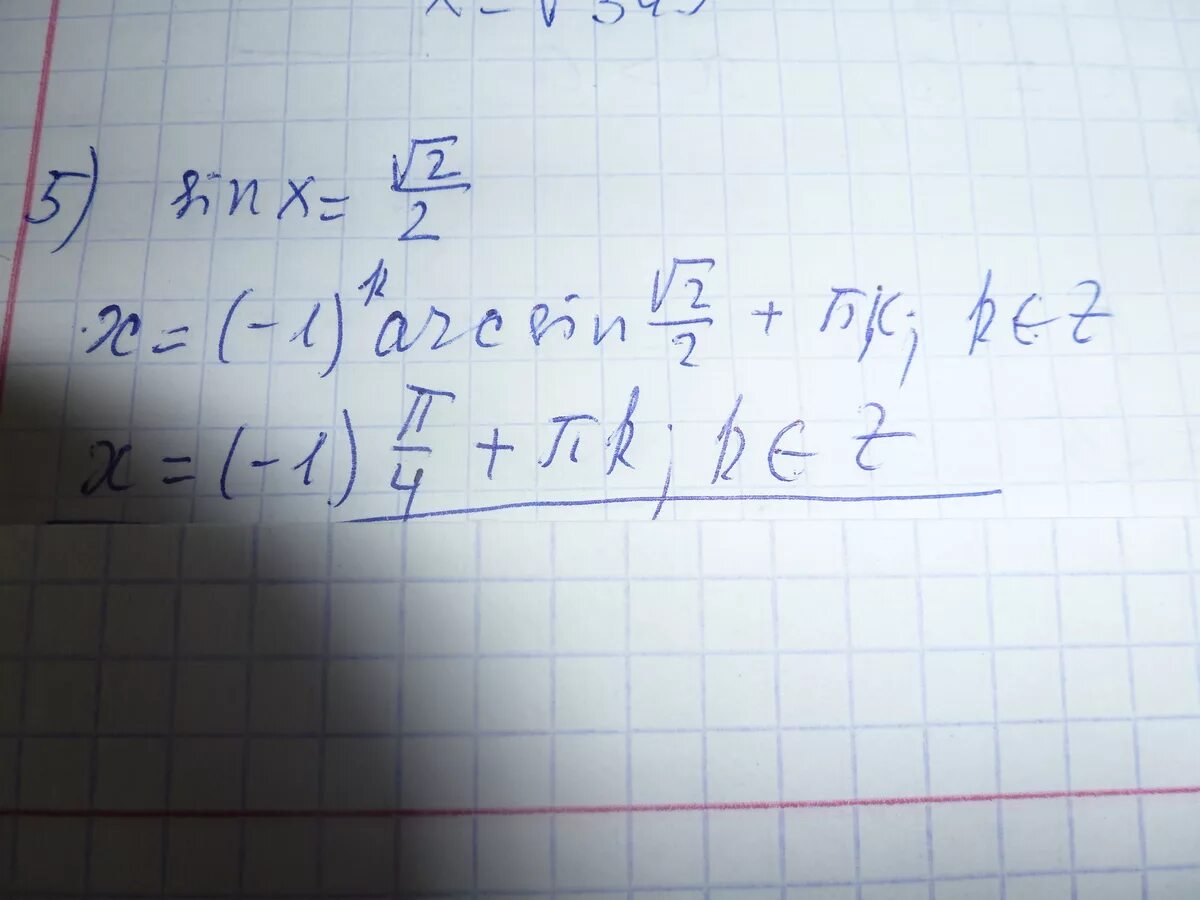 5) sin x = √2/2
x = (-1)^k arcsin √2/2 + πk; k ∈ Z
x = (-1) π/4 + πk; k ∈ Z